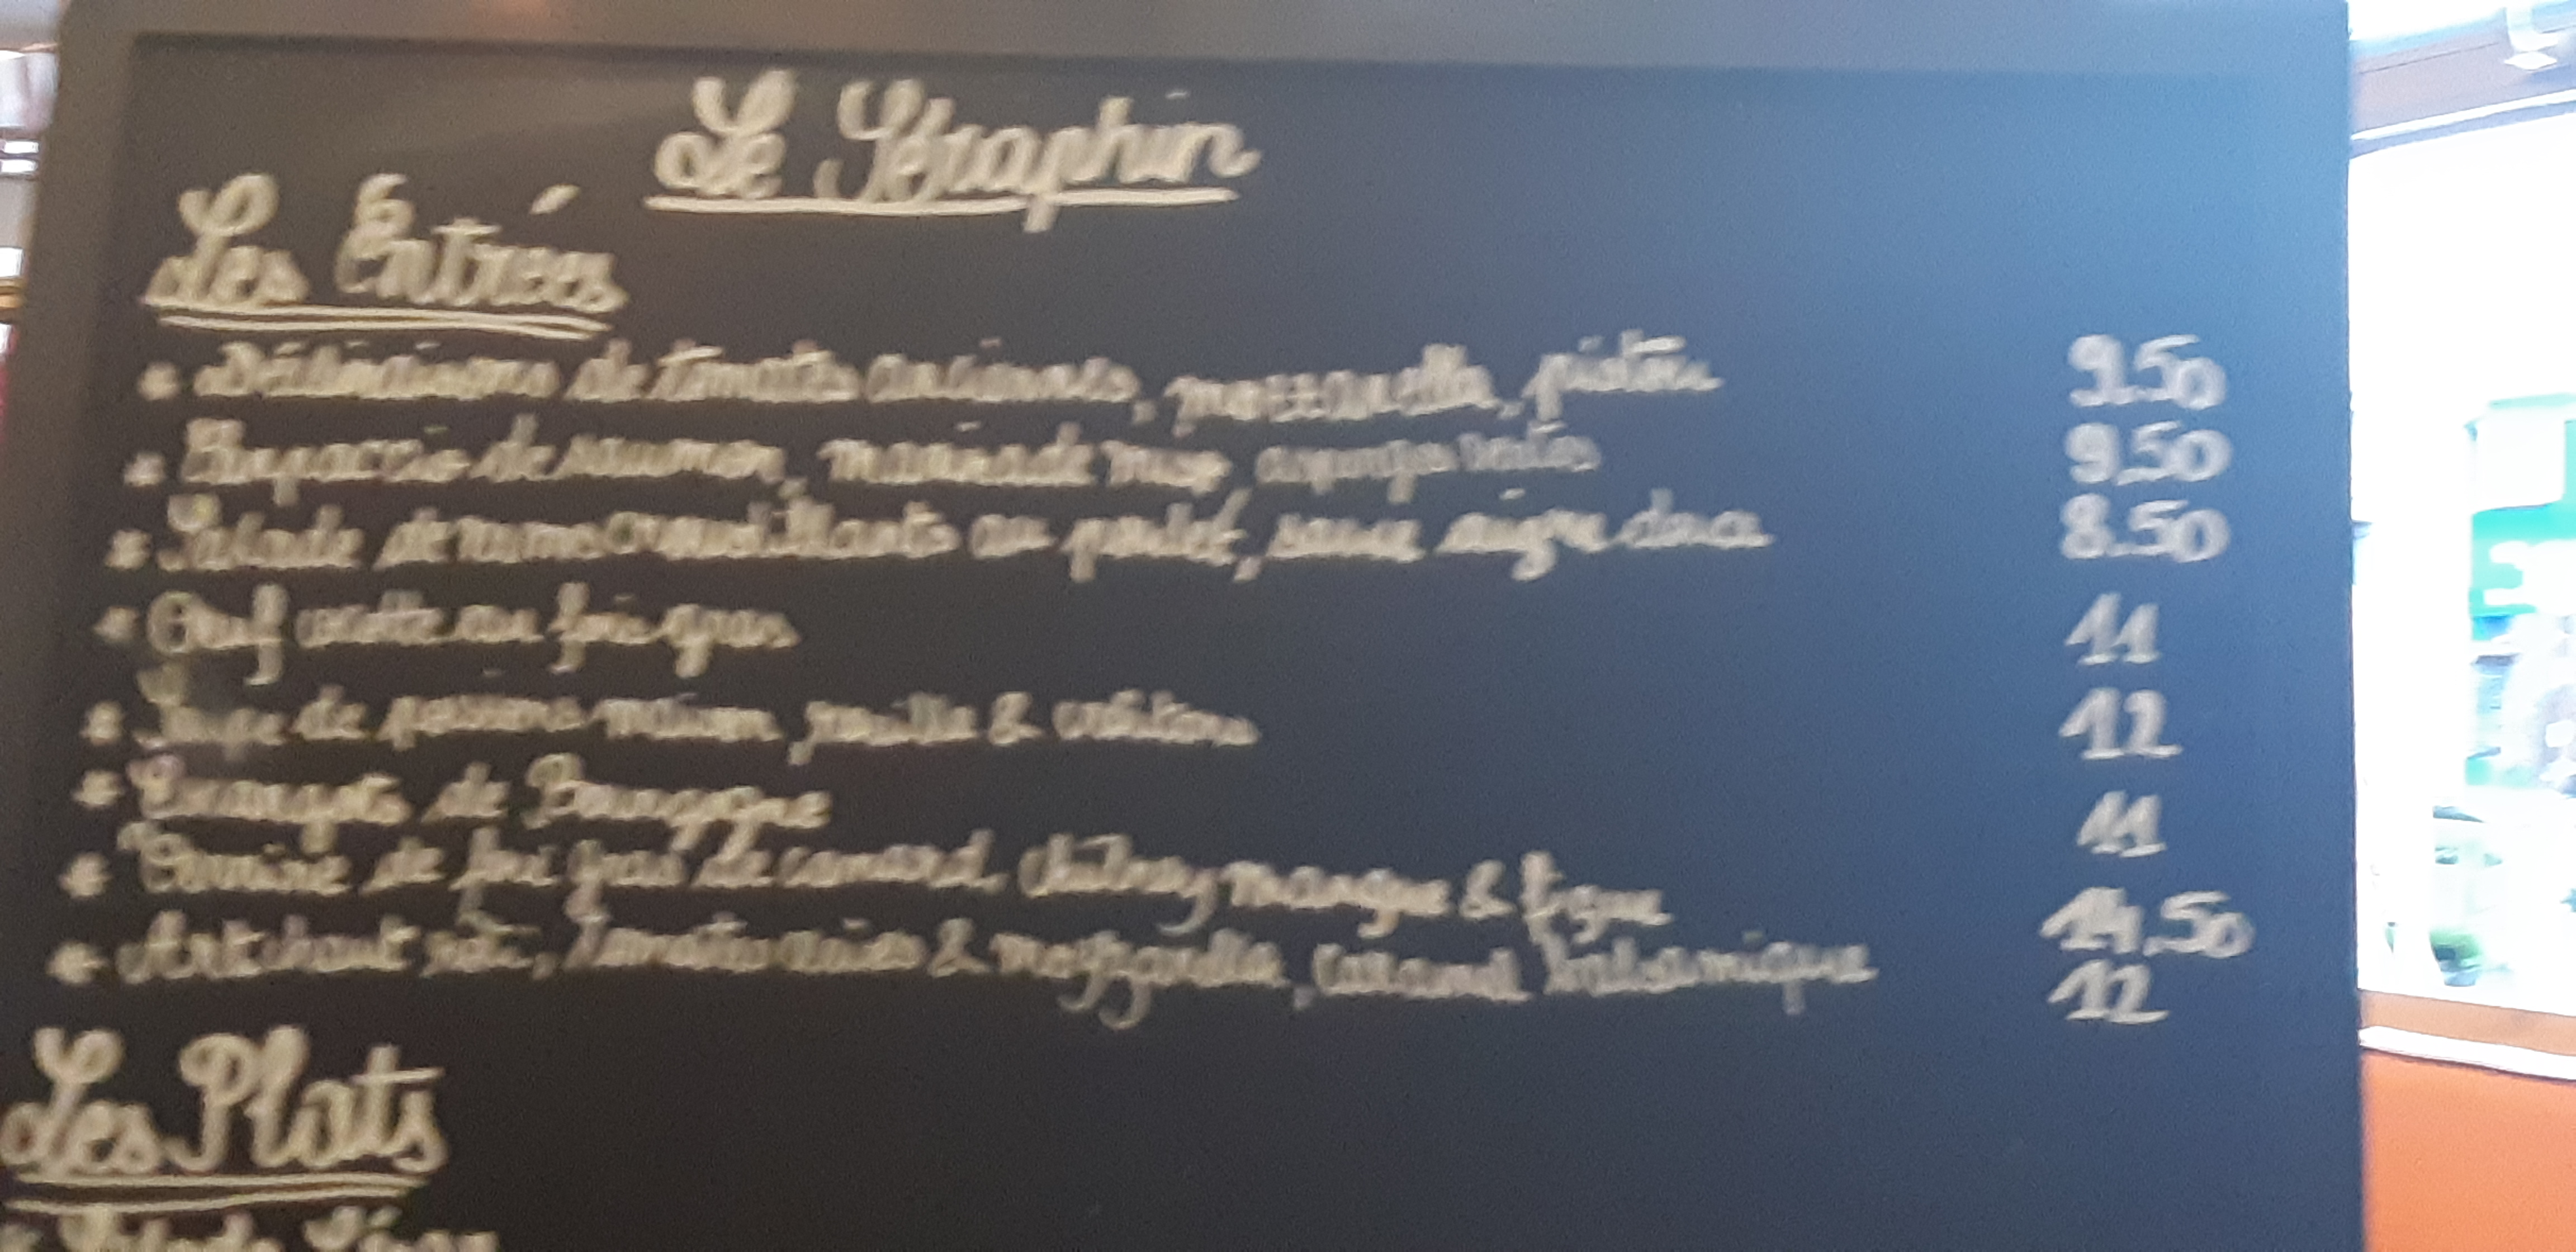 Le Séraphin
Les Entrées
* Déclinaisons de tomates anciennes, mozzarella, pistou 9.50
* Carpaccio de saumon, marinade miso, asperges vertes 9.50
* Salade de nems croustillants au poulet, sauce aigre douce 8.50
* Oeuf cocotte au foie gras 11
* Soupe de poissons maison, rouille & croûtons 12
* Escargots de Bourgogne 11
* Terrine de foie gras de canard, chutney mangue & figue 14.50
* Artichaut rôti, tomates & mozzarella, caramel balsamique 12
Les Plats
* Salade